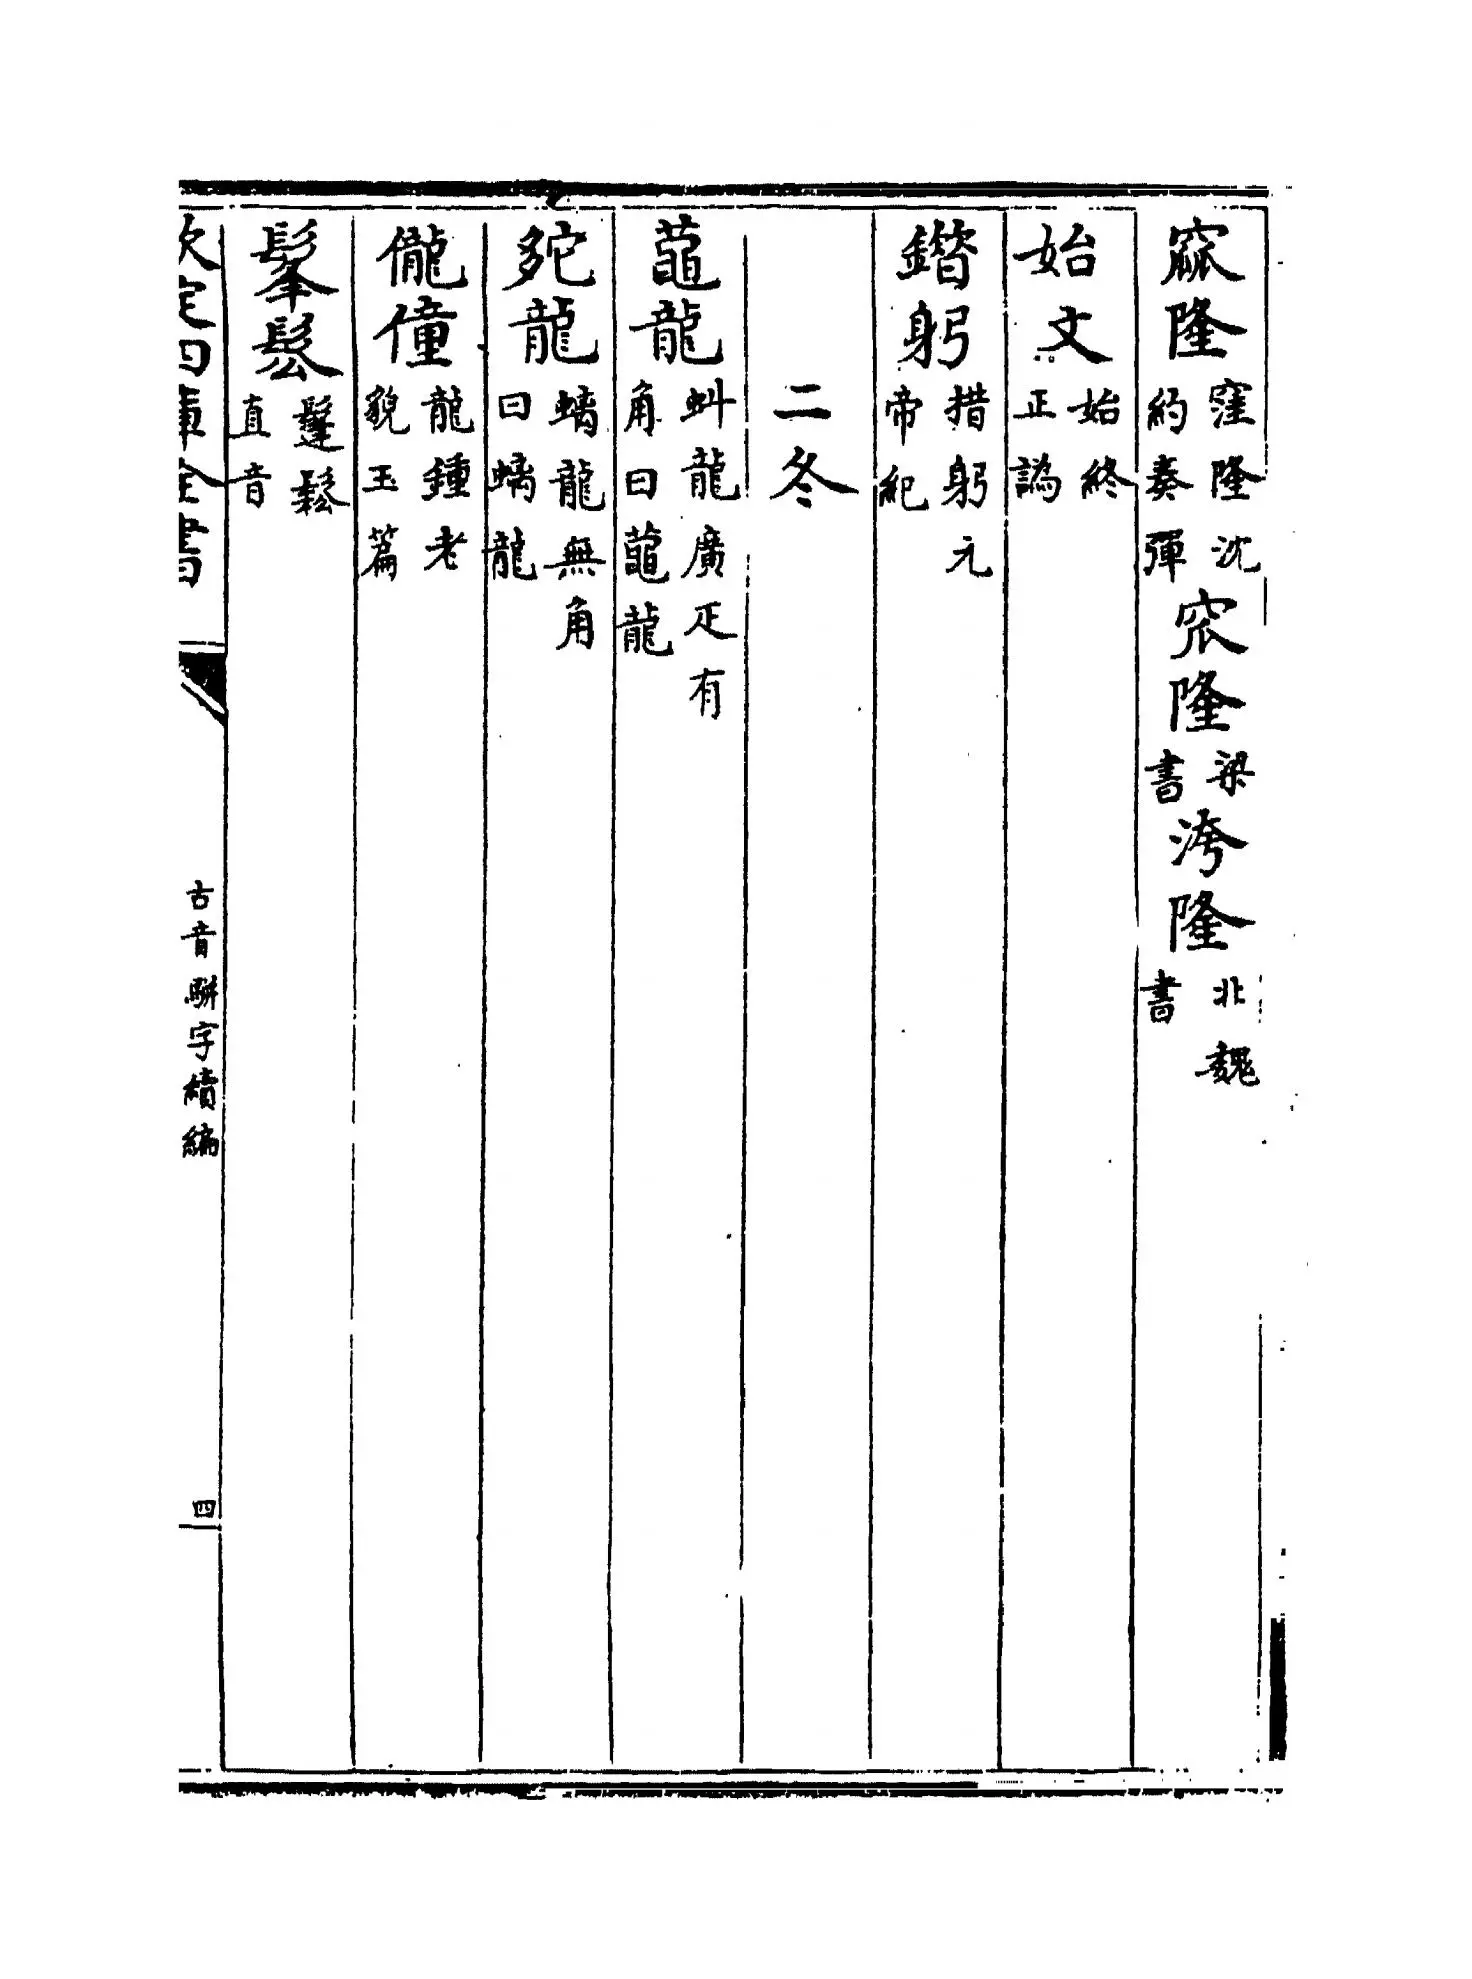 窊隆窪隆沈約奏彈䆗隆梁書洿隆北魏書
始文始終正譌
鍇躬措躬元帝紀
二冬
龍虯龍廣疋有角曰龍
䰿龍螭龍無角曰螭龍
儱偅龍鍾老貌玉篇
髼鬆鬔鬆直音
欽定四庫全書
古音駢字續編
四